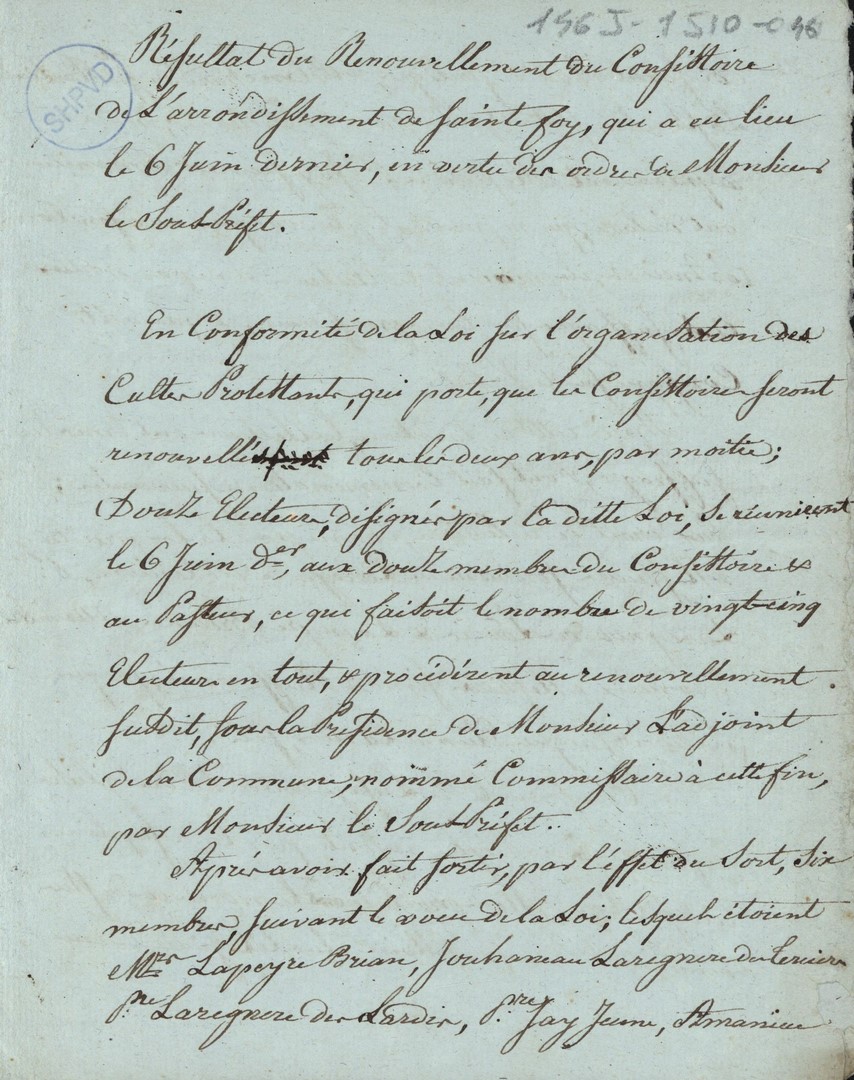 146 J-1510-046
SHPVD
Résultat du Renouvellement du Consistoire
de L'arrondissement de Sainte foy, qui a eu lieu
le 6 Juin dernier, en vertu des ordres de Monsieur
le Sous-Préfet.
En Conformité de la Loi sur l'organisation des
Cultes Protestants, qui porte, que les Consistoires seront
renouvellés tous les deux ans, par moitié;
Douze Electeurs, désignés par la ditte Loi, se réunirent
le 6 Juin der, aux douze membres du Consistoire &
au Pasteur, ce qui faisoit le nombre de vingt-cinq
Electeurs en tout, & procédérent au renouvellement
susdit, sous la Présidence de Monsieur L'adjoint
de la Commune, nommé Commissaire à cette fin,
par Monsieur le Sous-Préfet.
Après avoir fait sortir, par l'effet du Sort, Six
membres, suivant le voeu de la Loi; lesquels étoient
Mrs Lapeyre Brian, Jouhaneau Laregnere du
pre Laregnere des Lardis, pre Jay Jeune, Amanieu